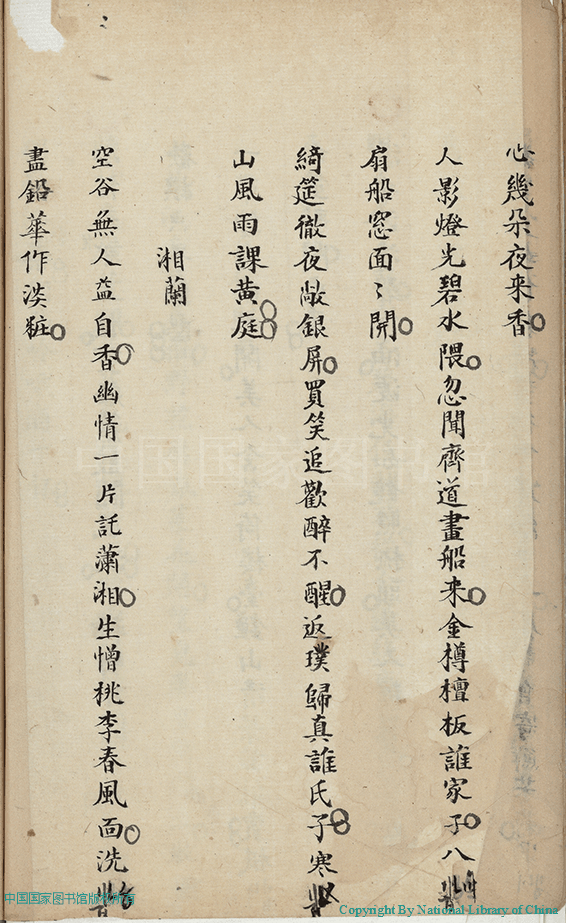 心幾朵夜来香
人影燈光碧水隈忽聞齊道畫船来金樽檀板誰家子八
扇船窓面〻開
綺筵徹夜敞銀屏買笑追歡醉不醒返璞歸真誰氏子寒
山風雨課黃庭
湘蘭
空谷無人益自香幽情一片託瀟湘生憎桃李春風面洗
盡鉛華作淡粧
中国国家图书馆
中国国家图书馆版权所有
Copyright By National Library of China